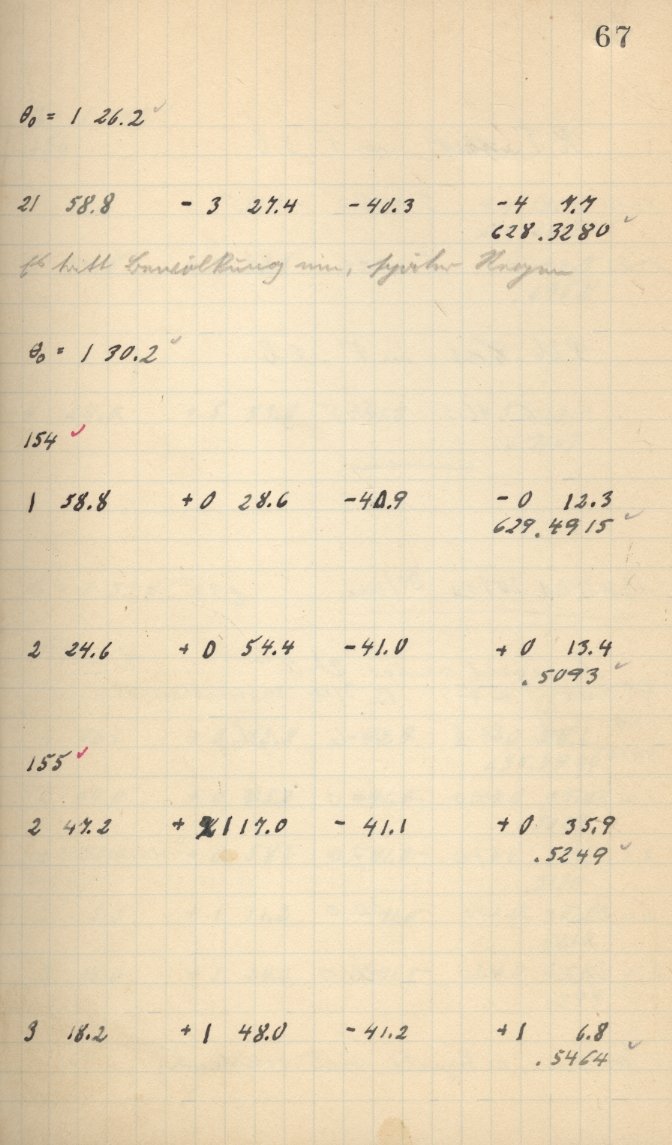 67
θ₀ = 1 26.2 ✓
21 58.8 - 3 27.4 - 40.3 - 4 7.7
628.3280 ✓
Es tritt Bewölkung ein, später Regen
θ₀ = 1 30.2 ✓
154 ✓
1 58.8 + 0 28.6 - 40.9 - 0 12.3
629.4915 ✓
2 24.6 + 0 54.4 - 41.0 + 0 13.4
.5093 ✓
155 ✓
2 47.2 + 1 17.0 - 41.1 + 0 35.9
.5249 ✓
3 18.2 + 1 48.0 - 41.2 + 1 6.8
.5464 ✓